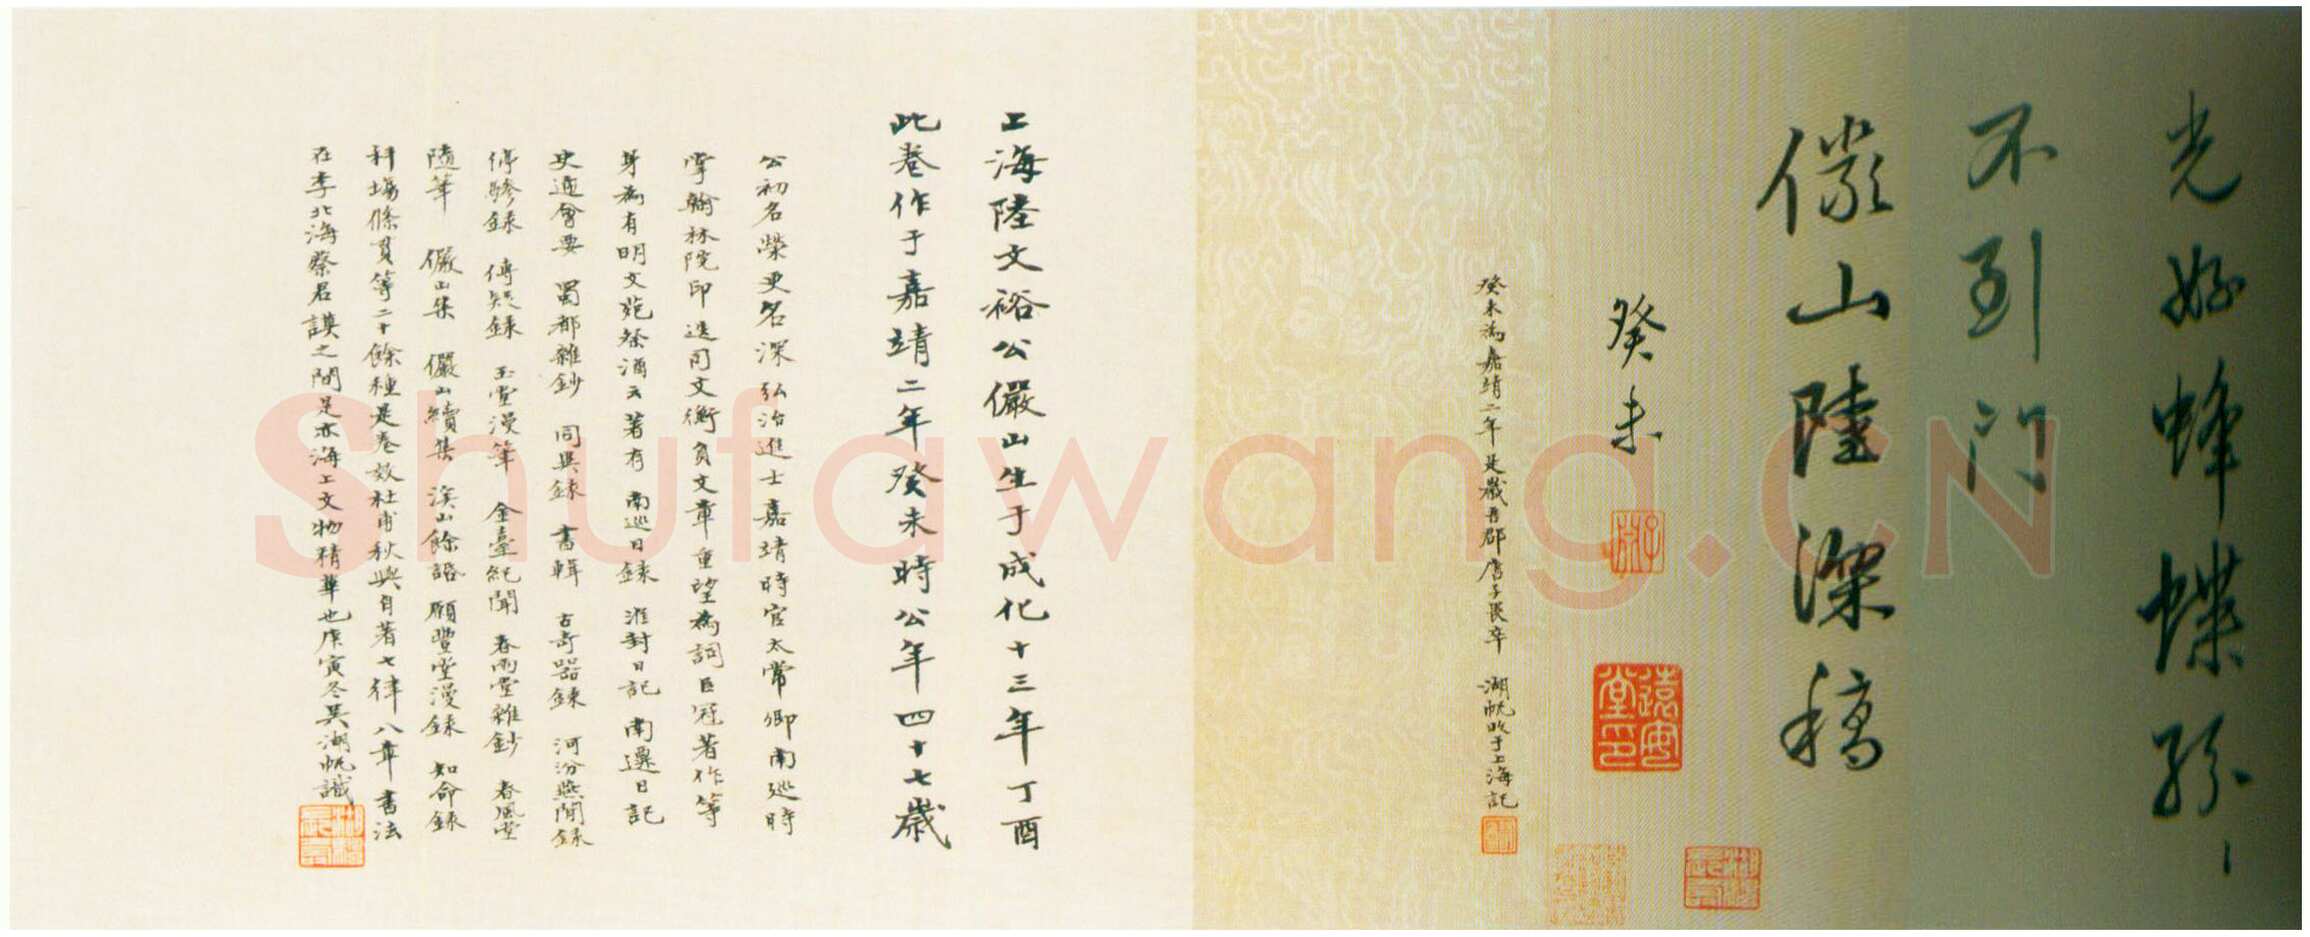 光好蜂蝶紛〻
不到门
儼山陸深稿
癸未
子淵
遠安堂印
癸未為嘉靖二年是歲吾郡唐子畏卒 湖帆收于上海記
上海陸文裕公儼山生于成化十三年丁酉
此卷作于嘉靖二年癸未時公年四十七歲
公初名榮更名深弘治進士嘉靖時官太常卿南巡時
掌翰林院印進同文衡負文章重望為詞臣冠著作等
身為有明文苑祭酒云著有 南巡日錄 淮封日記 南遷日記
史通會要 蜀都雜鈔 同異錄 書輯 古奇器錄 河汾燕閒錄
停驂錄 傳疑錄 玉堂漫筆 金臺紀聞 春雨堂雜鈔 春風堂
隨筆 儼山集 儼山續集 溪山餘話 願豐堂漫錄 知命錄
科場條貫等二十餘種是卷效杜甫秋興自著七律八章 書法
在李北海蔡君謨之間是亦海上文物精華也庚寅冬吳湖帆識
Shufawang.CN